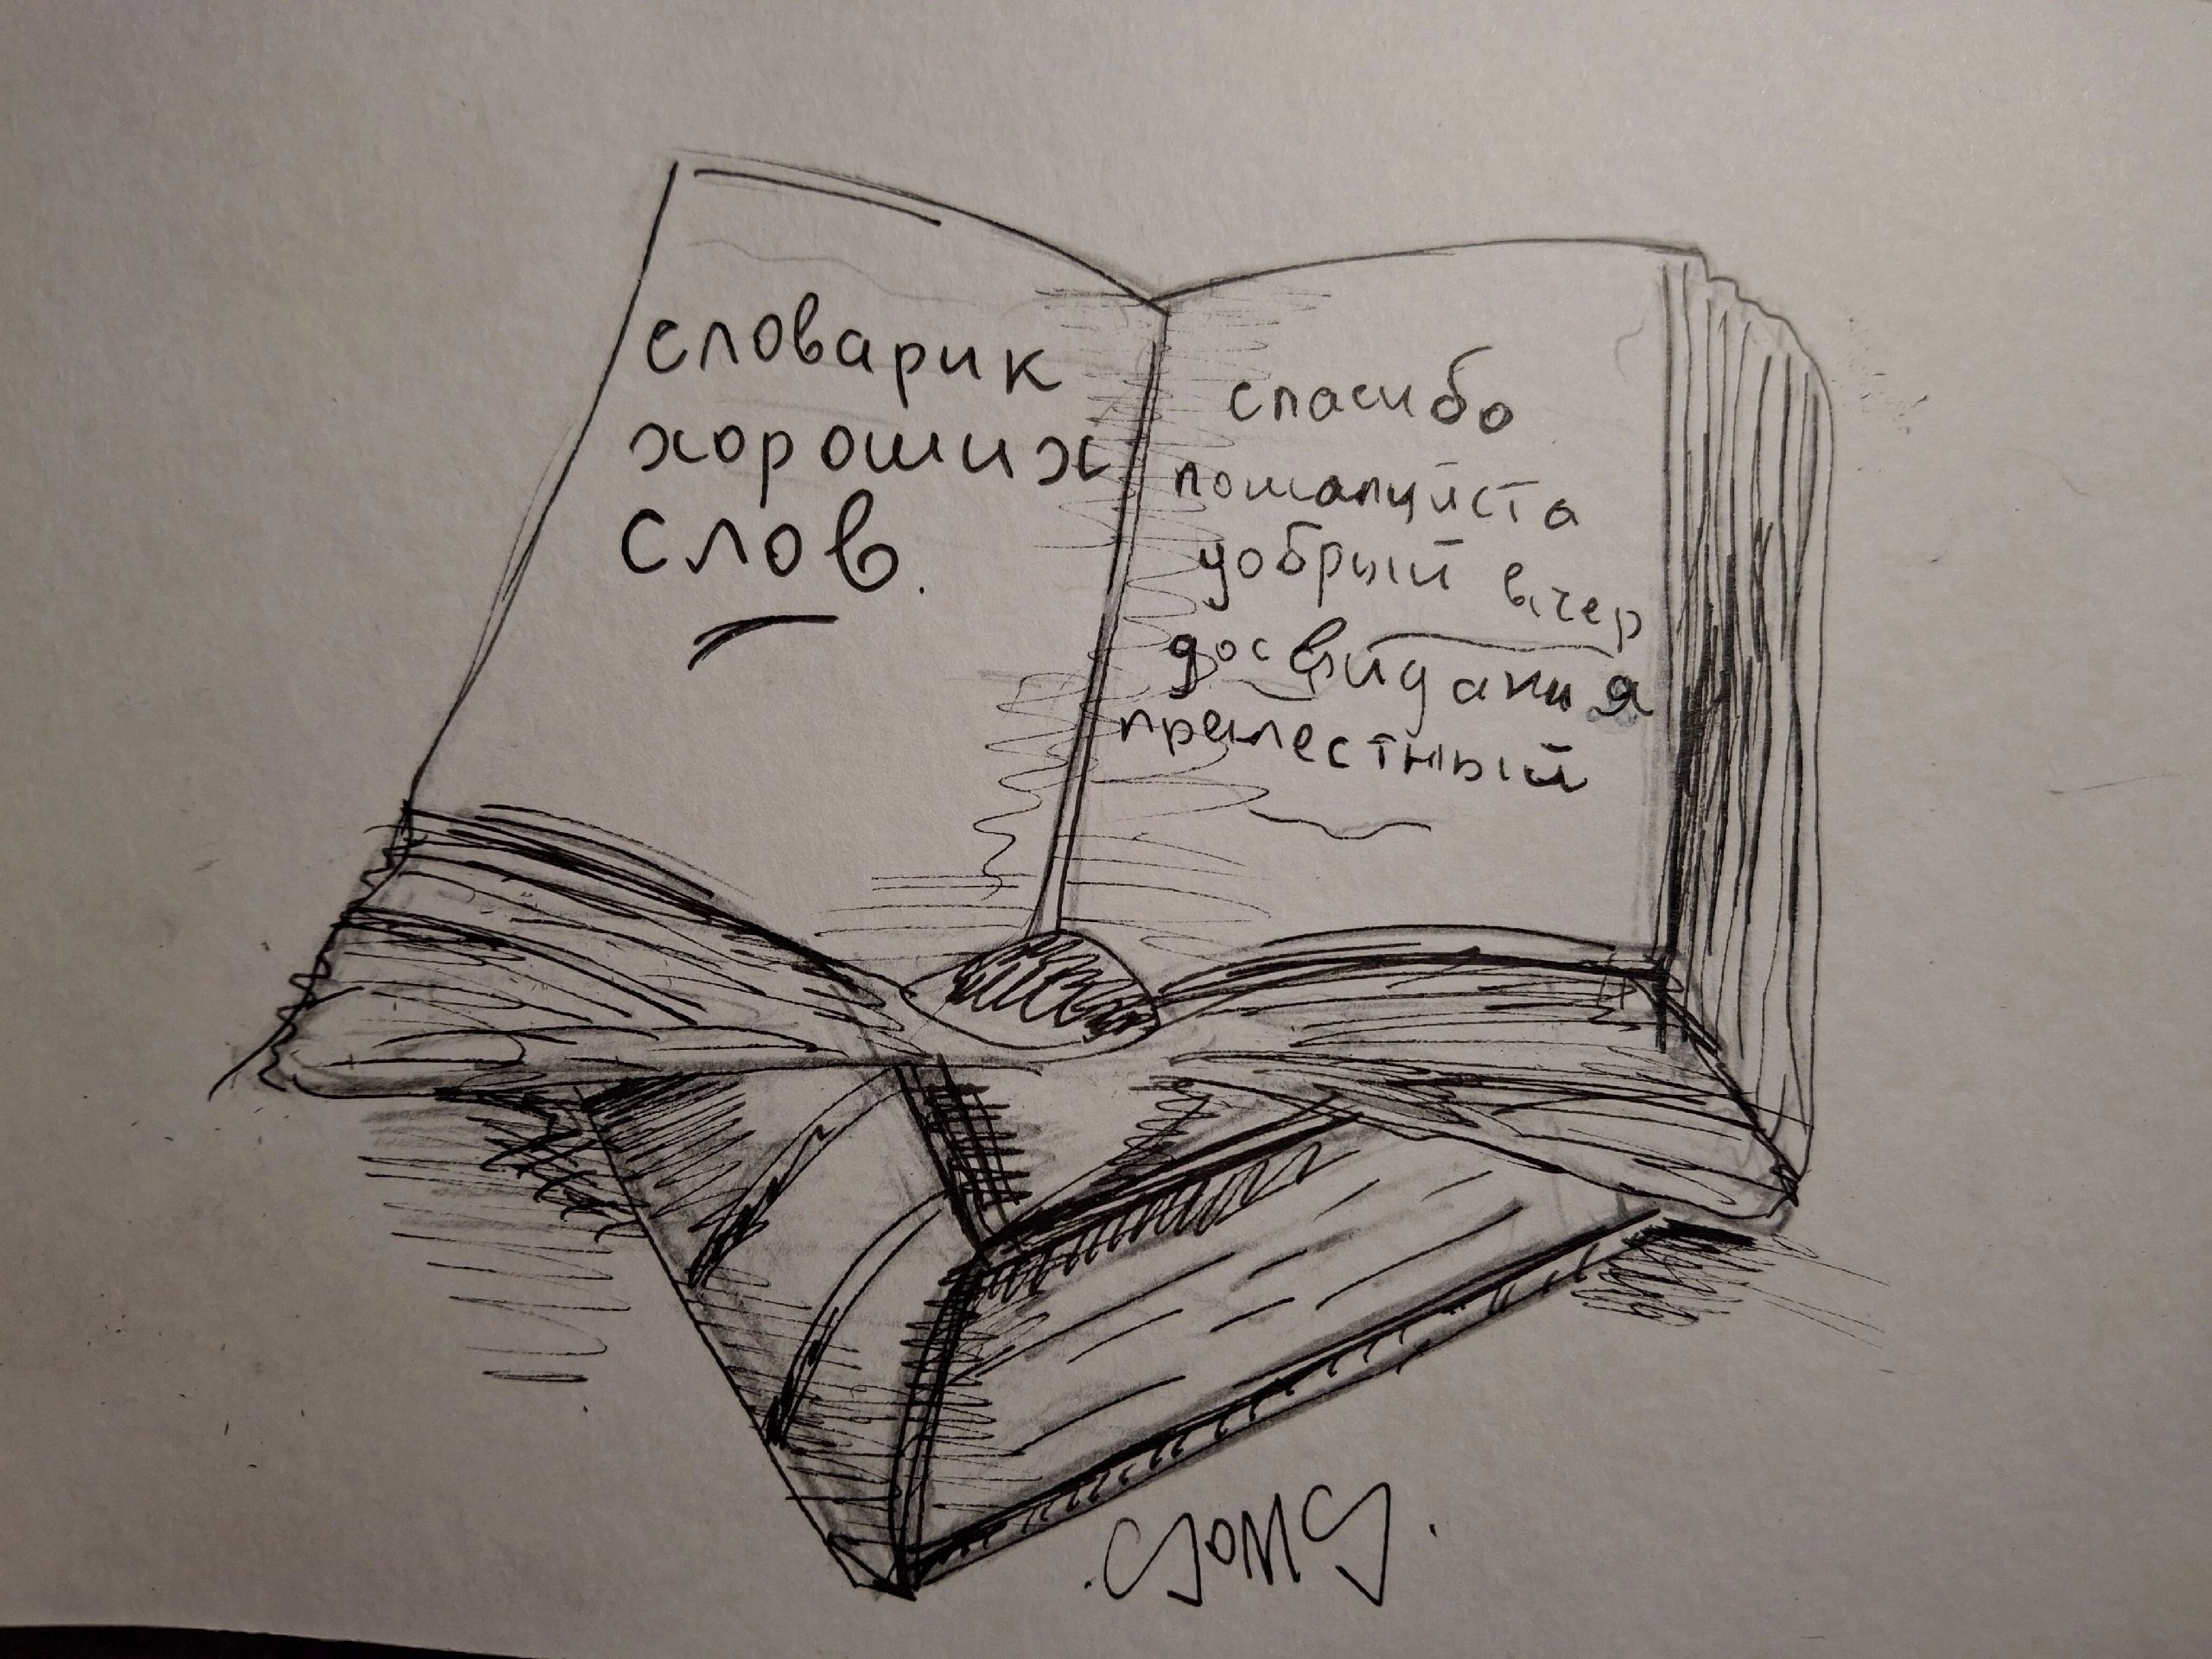 словарик
хороших
слов.
спасибо
пожалуйста
добрый вечер
досвидания
прелестный